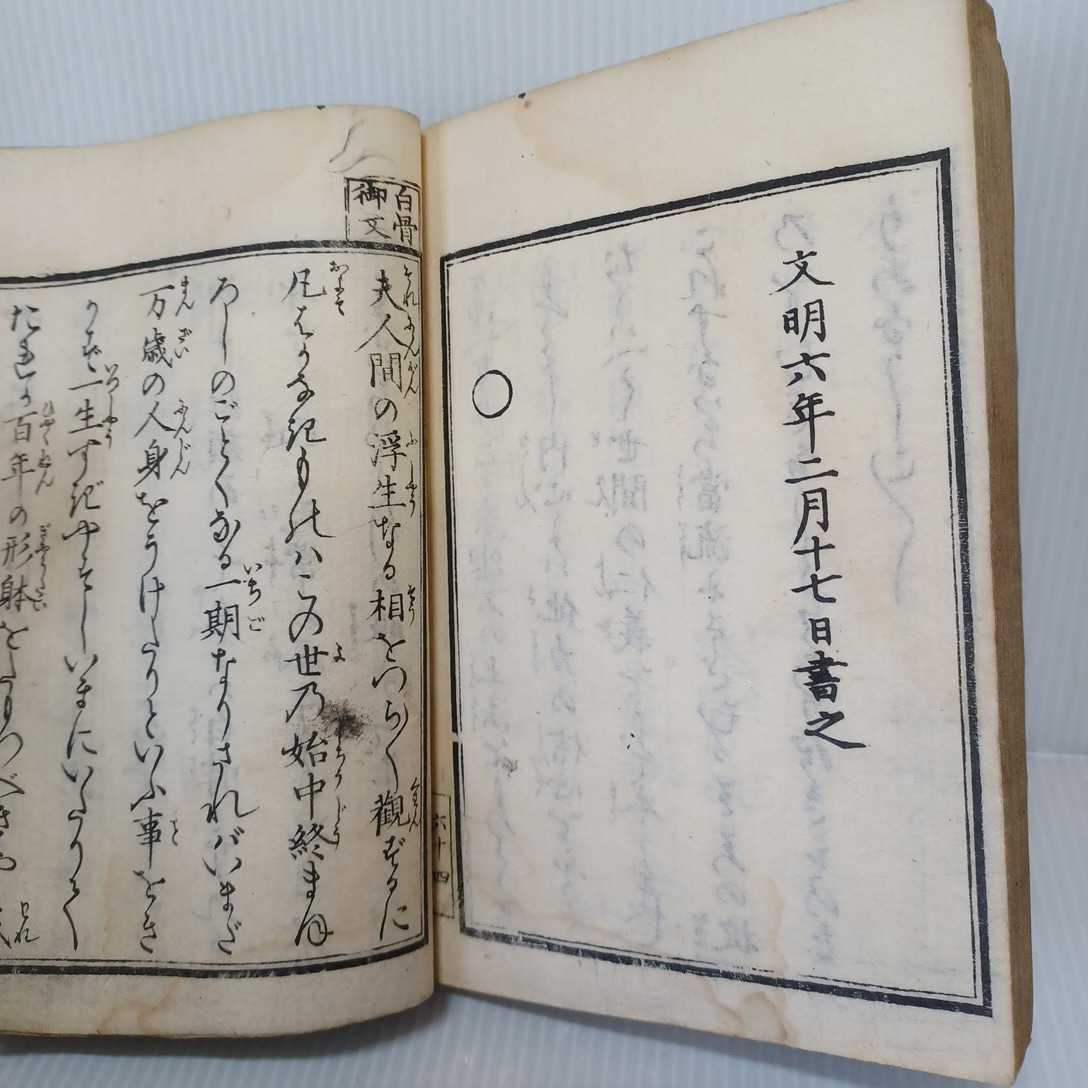 文明六年二月十七日書之
○
六十四
白骨
御文
夫人間の浮生なる相をつら〱觀ずるに
凡はかなきものハこの世乃始中終まぼ
ろしのごとくなる一期なりされバいまだ
万歳の人身をうけたりといふ事をき
かず一生すぎやすしいまにいたりて
たれか百年の形躰をたもつべきや